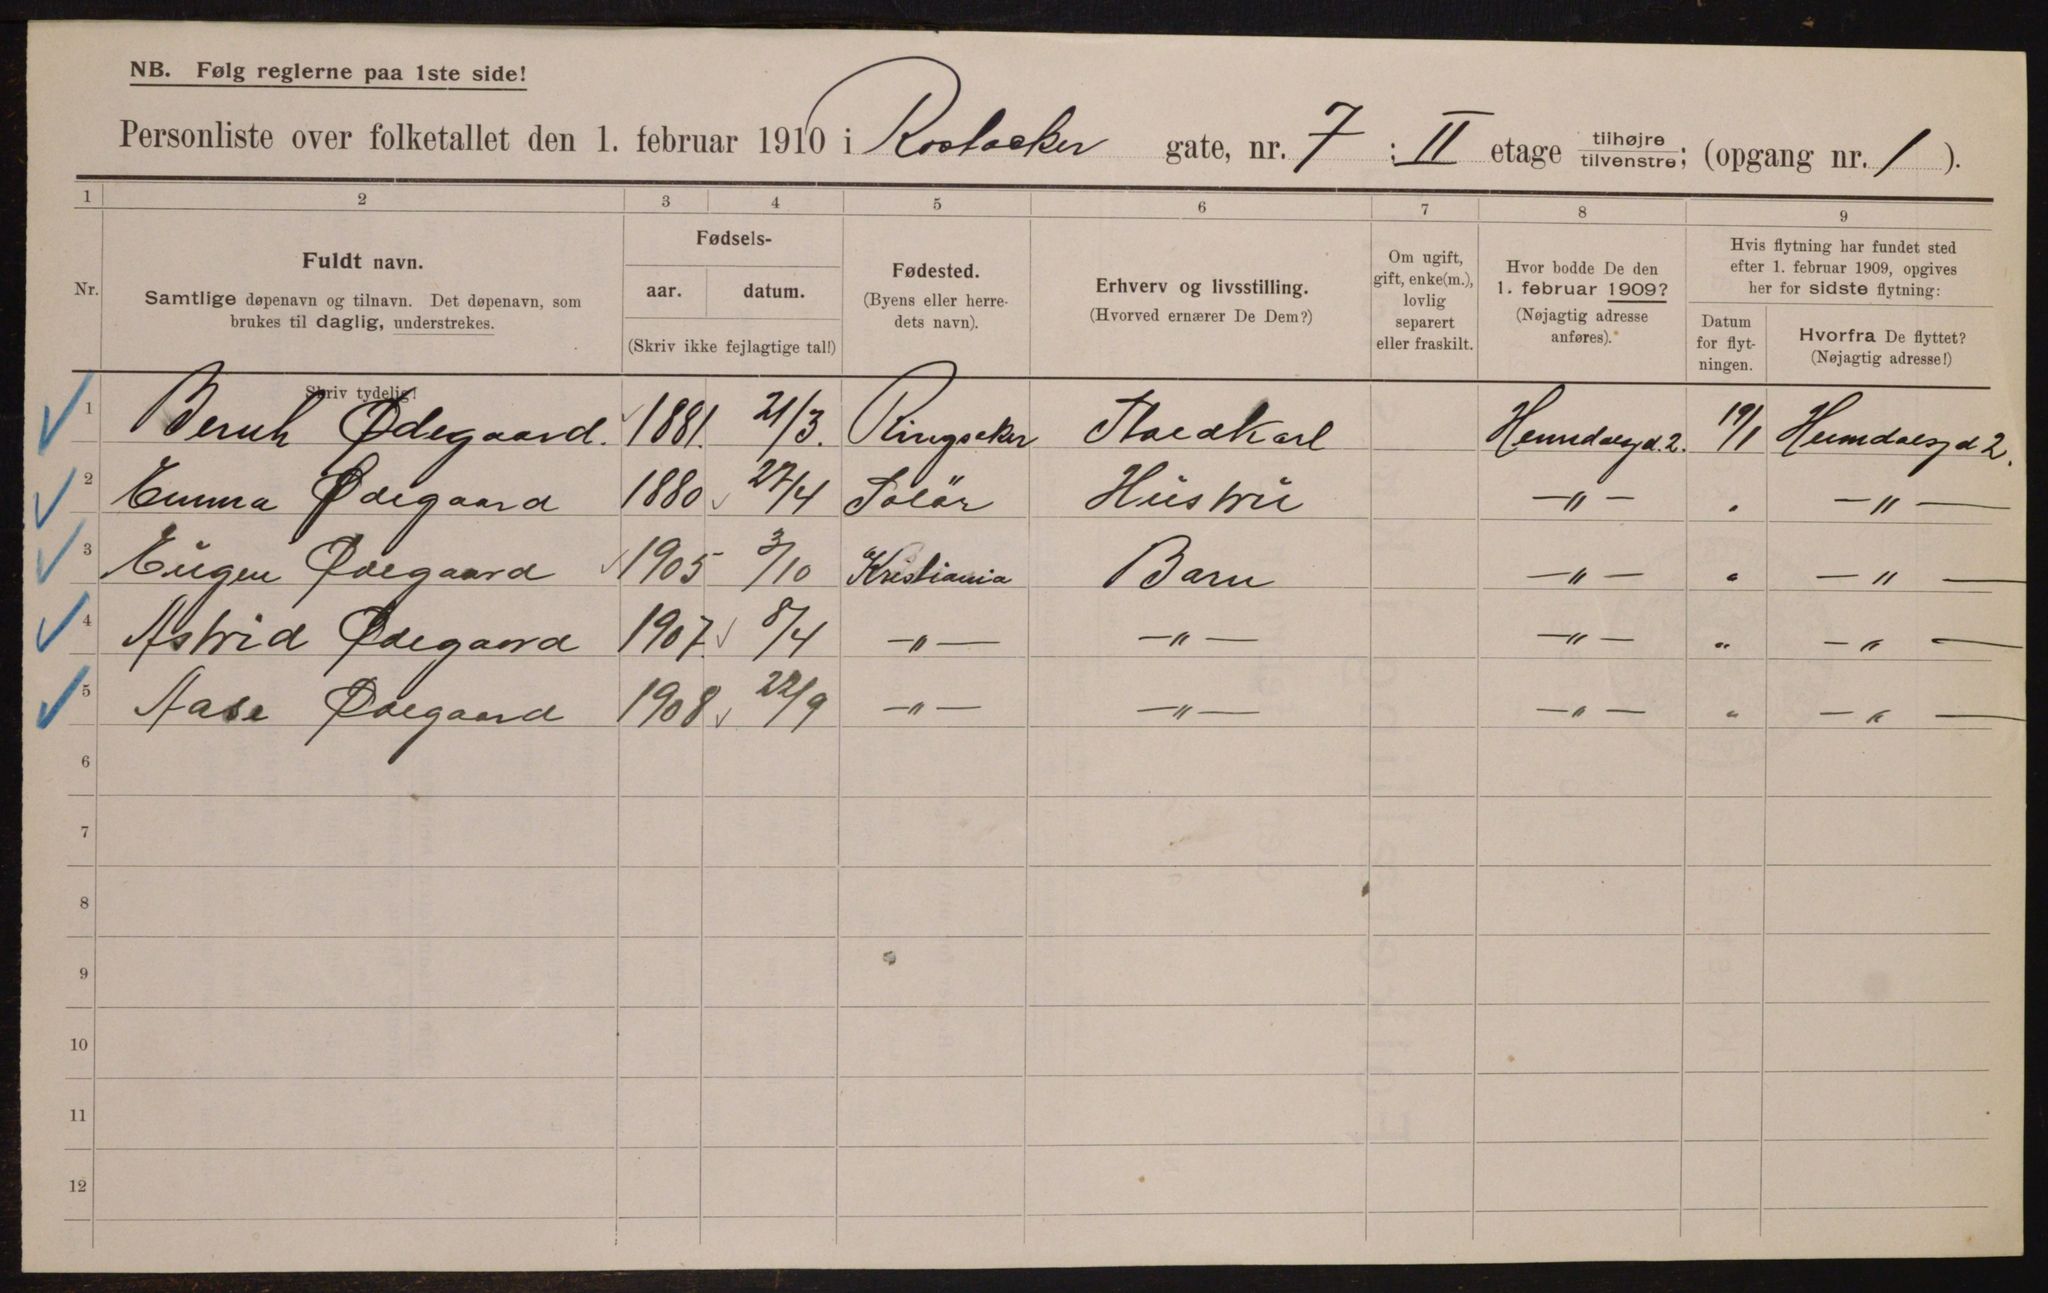 NB. Følg reglerne paa 1ste side!
Personliste over folketallet den 1. februar 1910 i Rostocker gate, nr. 7 : II etage tilhøjre/tilvenstre; (opgang nr. 1 ).
1 2 3 4 5 6 7 8 9
Nr. Fuldt navn. Samtlige døpenavn og tilnavn. Det døpenavn, som brukes til daglig, understrekes.
Skriv tydelig!
Fødsels- aar. datum. (Skriv ikke fejlagtige tal!)
Fødested. (Byens eller herredets navn).
Erhverv og livsstilling. (Hvorved ernærer De Dem?)
Om ugift, gift, enke(m.), lovlig separert eller fraskilt.
Hvor bodde De den 1. februar 1909? (Nøjagtig adresse anføres).
Hvis flytning har fundet sted efter 1. februar 1909, opgives her for sidste flytning:
Datum for flytningen. Hvorfra De flyttet? (Nøjagtig adresse!)
1 Ødegaard. 1881. 21/3. Ringsaker 19/1
2 Emma Ødegaard 1880 27/4 Solör Hustru —"— " —"—
3 Eugen Ødegaard 1905 3/10 Kristiania Barn —"— " —"—
4 Astrid Ødegaard 1907. 8/4 —"— —"— —"— " —"—
5 Aase Ødegaard 1908 22/9 —"— —"— —"— " —"—
6
7
8
9
10
11
12